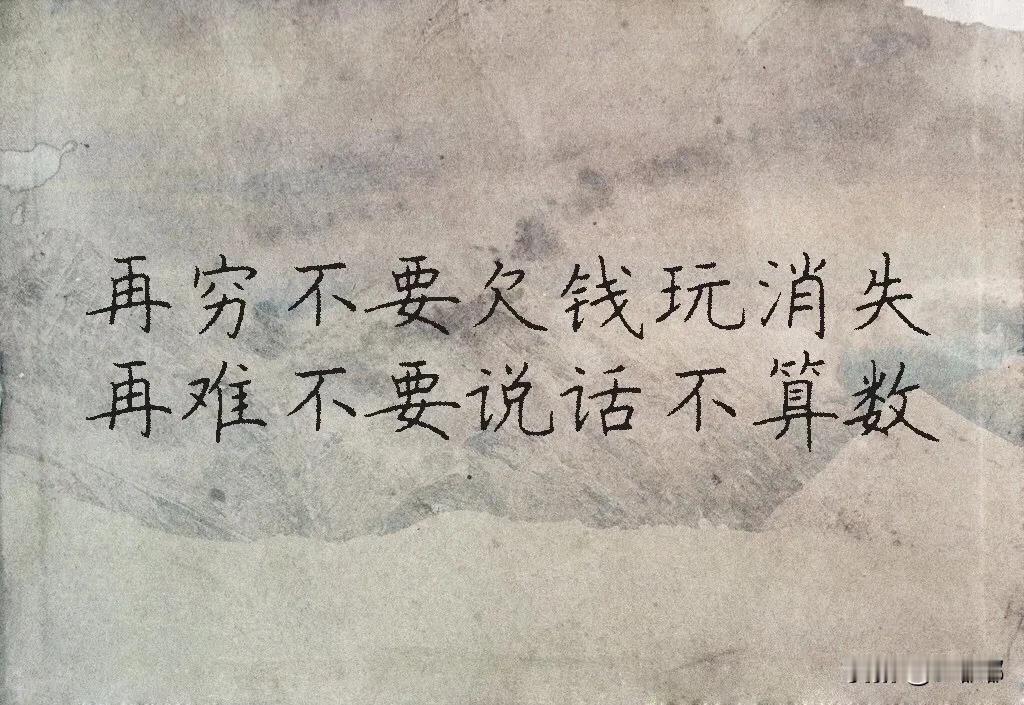 再穷不要欠钱玩消失
再难不要说话不算数